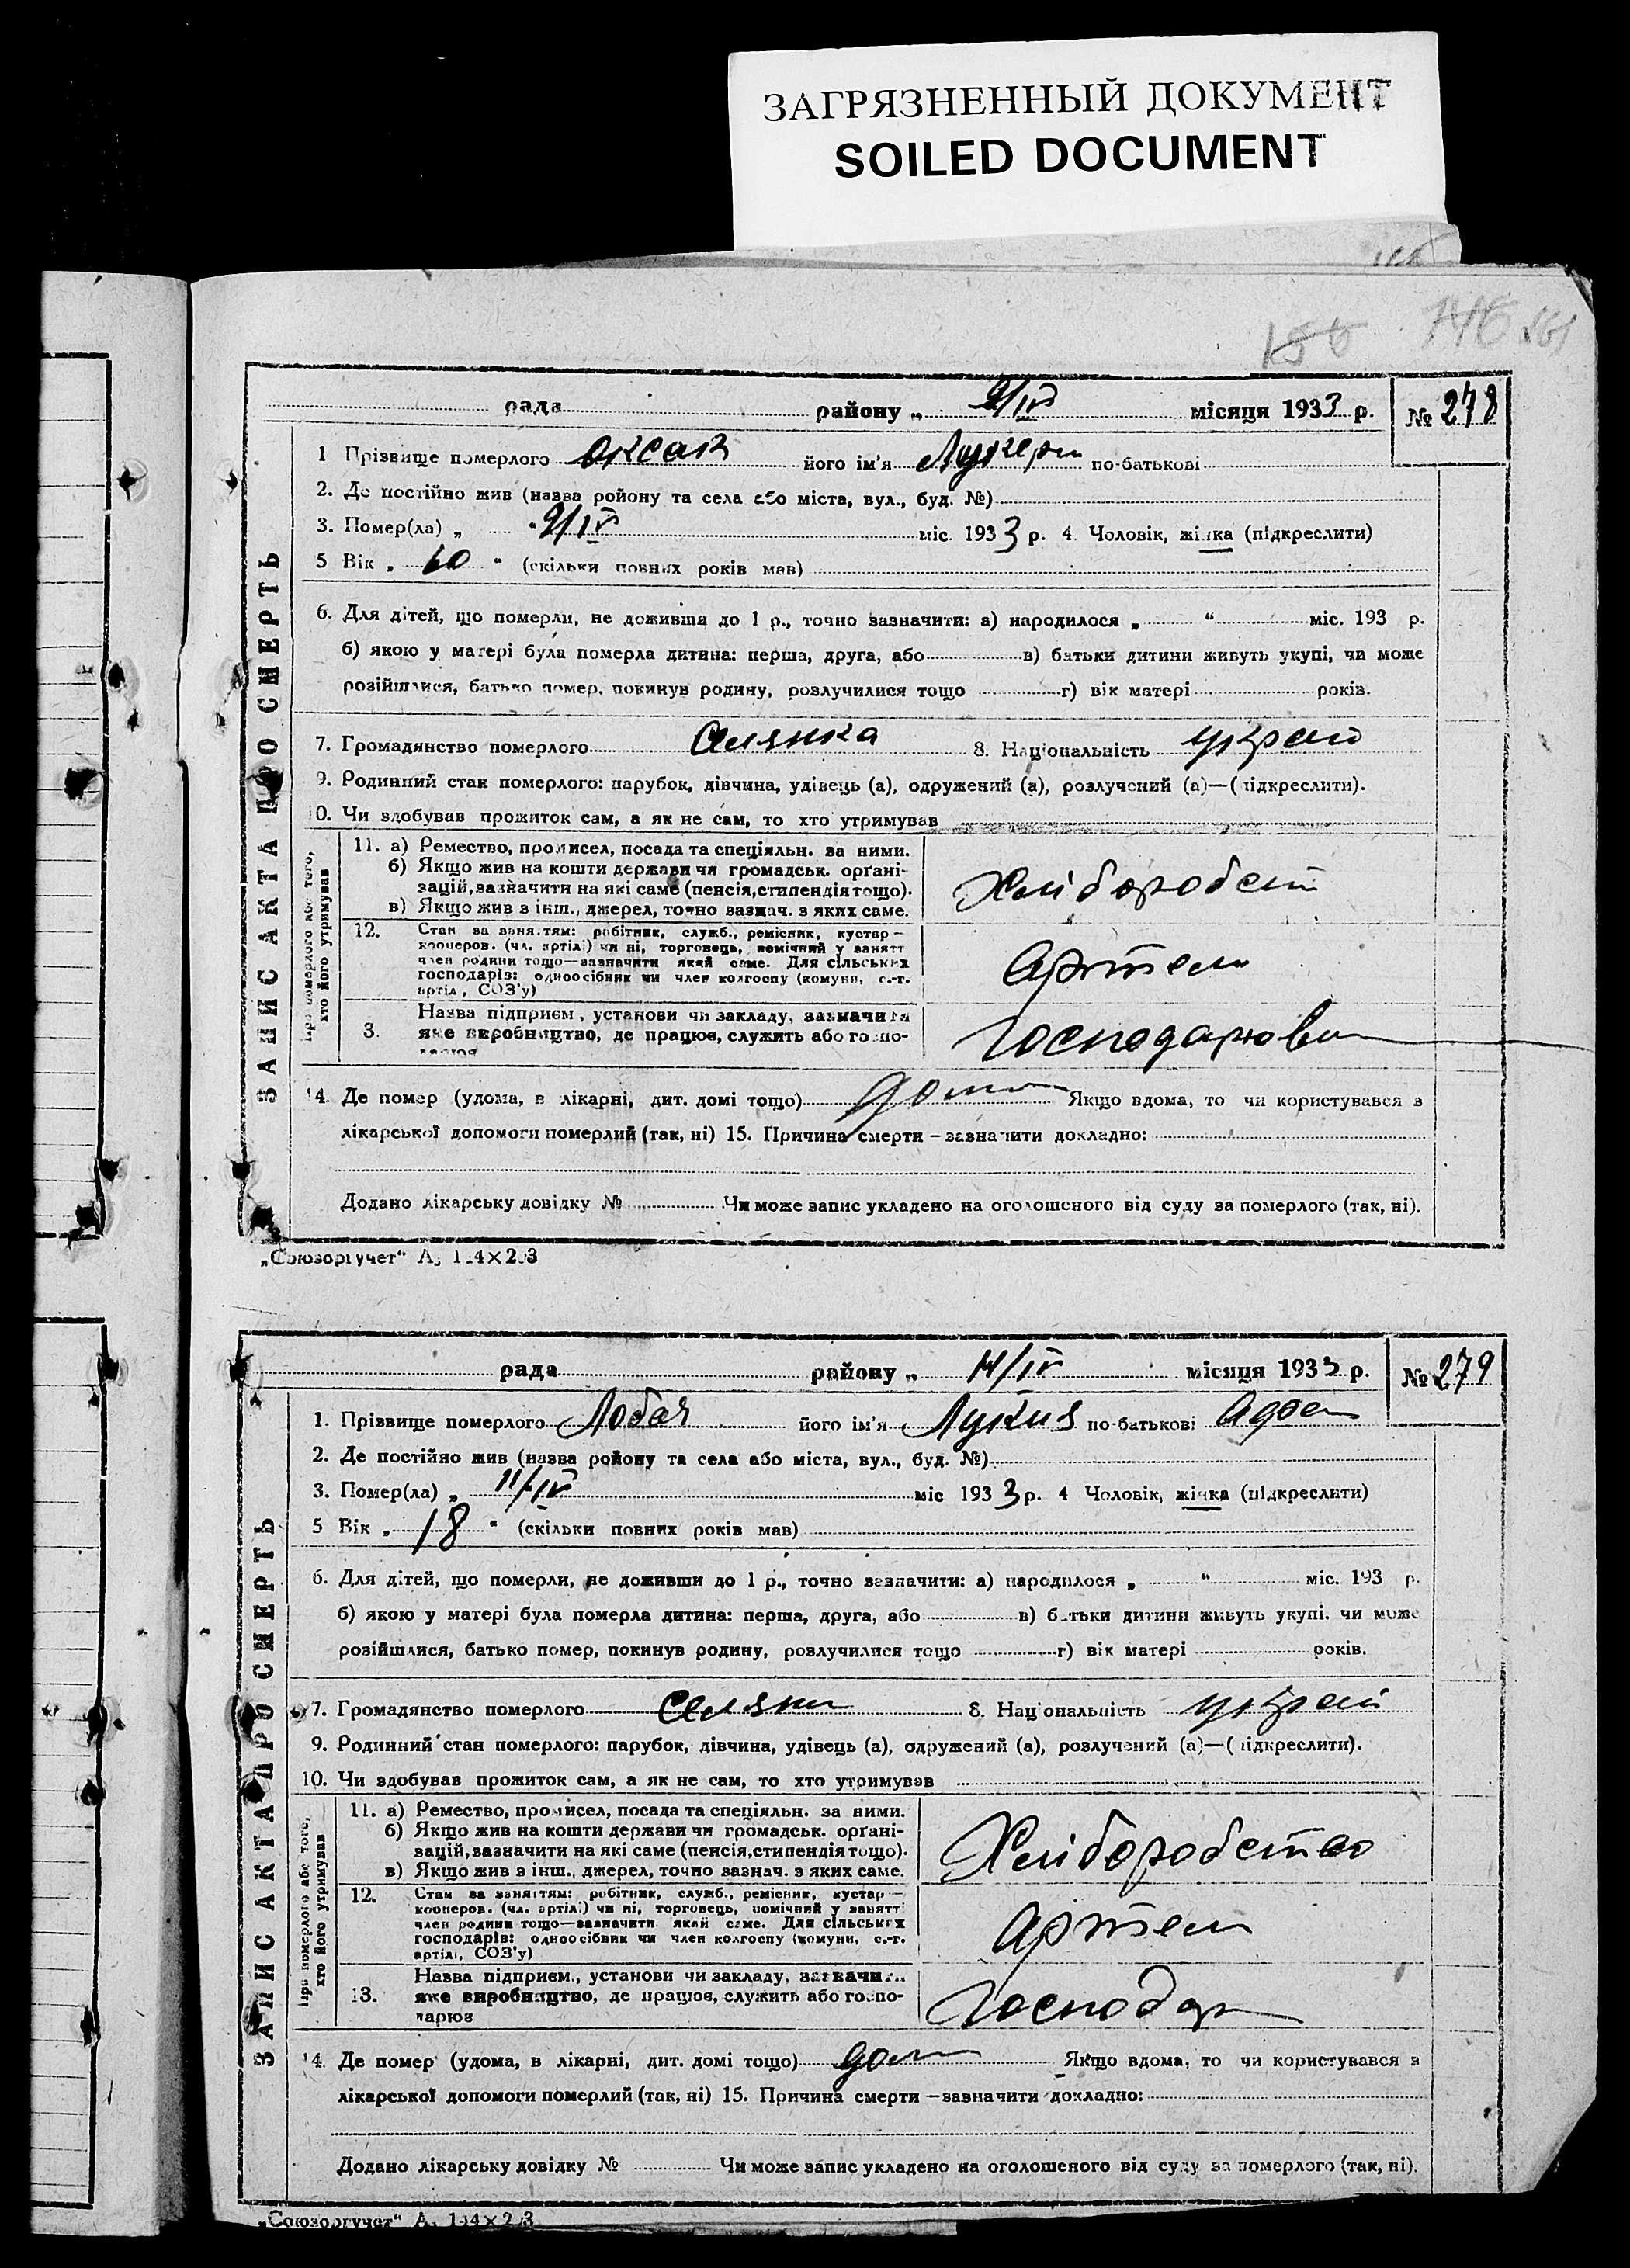 ЗАГРЯЗНЕННЫЙ ДОКУМЕНТ
SOILED DOCUMENT
рада района „ 9/IV місяця 1933 р. № 278
ЗАПИС АКТА ПРО СМЕРТЬ
1 Прізвище померлого Оксак його ім'я Лукери по-батькові
2. Де постійно жив (назва ройону та села або міста, вул., буд. №)
3. Помер(ла) „ 9/IV міс. 1933 р. 4. Чоловік, жінка (підкреслити)
5 Вік „ 60 “ (скільки повних років мав)
6. Для дітей, що померли, не доживши до 1 р., точно зазначити: а) народилося „ “ міс. 193 р.
б) якою у матері була померла дитина: перша, друга, або в) батьки дитини живуть укупі, чи може
розійшлися, батько помер, покинув родину, розлучилися тощо г) вік матері років.
7. Громадянство померлого Селянка 8. Національність україн
9. Родинний стан померлого: парубок, дівчина, удівець (а), одружений (а), розлучений (а)—(підкреслити).
10. Чи здобував прожиток сам, а як не сам, то хто утримував
Про померлого або того, хто його утримував
11. а) Ремество, промисел, посада та спеціяльн. за ними.
б) Якщо жив на кошти держави чи громадськ. орґані-
зацій, зазначити на які саме (пенсія, стипендія тощо).
в) Якщо жив з інш., джерел, точно зазнач. з яких саме.
Хліборобст
12. Стан за заняттям: робітник, служб., ремісник, кустар—
кооперов. (чл. артілі) чи ні, торговець, помічний у занятт
член родини тощо—зазначити який саме. Для сільських
господарів: одноосібник чи член колгоспу (комуни, с.-г.
артіл, СОЗ'у)
Артели
3. Назва підприєм, установи чи закладу, зазначити
яке виробництво, де працює, служить або госпо-
дарює
Господарюван
14. Де помер (удома, в лікарні, дит. домі тощо) дома Якщо вдома, то чи користувався з
лікарської допомоги померлий (так, ні) 15. Причина смерти – зазначити докладно:
Додано лікарську довідку № Чи може запис укладено на оголошеного від суду за померлого (так, ні).
„Союзоргучет“
рада району „ 14/IV місяця 1933 р. № 279
ЗАПИС АКТА ПРО СМЕРТЬ
1. Прізвище померлого Лобач його ім'я Лукия по-батькові
2. Де постійно жив (назва ройону та села або міста, вул., буд. №)
3. Помер(ла) „ 11/IV міс 1933 р. 4 Чоловік, жінка (підкреслити)
5 Вік „ 18 “ (скільки повних років мав)
6. Для дітей, що померли, не доживши до 1 р., точно зазначити: а) народилося „ “ міс. 193 р.
б) якою у матері була померла дитина: перша, друга, або в) батьки дитини живуть укупі, чи може
розійшлися, батько помер, покинув родину, розлучилися тощо г) вік матері років.
7. Громадянство померлого Селянк 8. Національність україн
9. Родинний стан померлого: парубок, дівчина, удівець (а), одружений (а), розлучений (а)—(підкреслити).
10. Чи здобував прожиток сам, а як не сам, то хто утримував
Про померлого або того, хто його утримував
11. а) Ремество, промисел, посада та спеціяльн. за ними.
б) Якщо жив на кошти держави чи громадськ. орґані-
зацій, зазначити на які саме (пенсія, стипендія тощо).
в) Якщо жив з інш., джерел, точно зазнач. з яких саме.
Хліборобство
12. Стан за заняттям: робітник, служб., ремісник, кустар—
кооперов. (чл. артілі) чи ні, торговець, помічний у занятт
член родини тощо—зазначити який саме. Для сільських
господарів: одноосібник чи член колгоспу (комуни, с.-г.
артілі, СОЗ'у)
Артели
13. Назва підприєм., установи чи закладу, зазначити
яке виробництво, де працює, служить або госпо-
дарює
Господар
14. Де помер (удома, в лікарні, дит. домі тощо) дома Якщо вдома, то чи користувався з
лікарської допомоги померлий (так, ні) 15. Причина смерти – зазначити докладно:
Додано лікарську довідку № Чи може запис укладено на оголошеного від суду за померлого (так, ні).
„Союзоргучет“